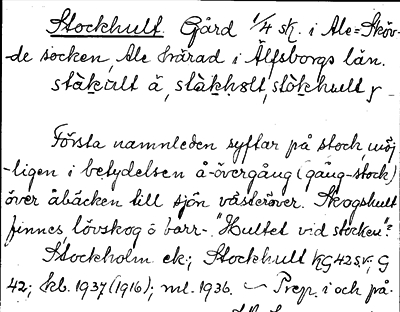 Stockhult. Gård 1/4 sk. i Ale=Sköv-
de socken, Ale härad i Älfsborgs län.
stàkult å, stàkhołt, stökhult y -
Första namnleden syftar på stock, möj
-ligen i betydelsen å-övergång (gång-stock)
över åbäcken till sjön västeröver. Skogshult
finnes, lövskog o barr-. "Hultet vid stocken"?
Stockholm ek.; Stockhult KG 42 s.v.; G
42; kb. 1937 (1916); ml. 1936. Prep. i och på.